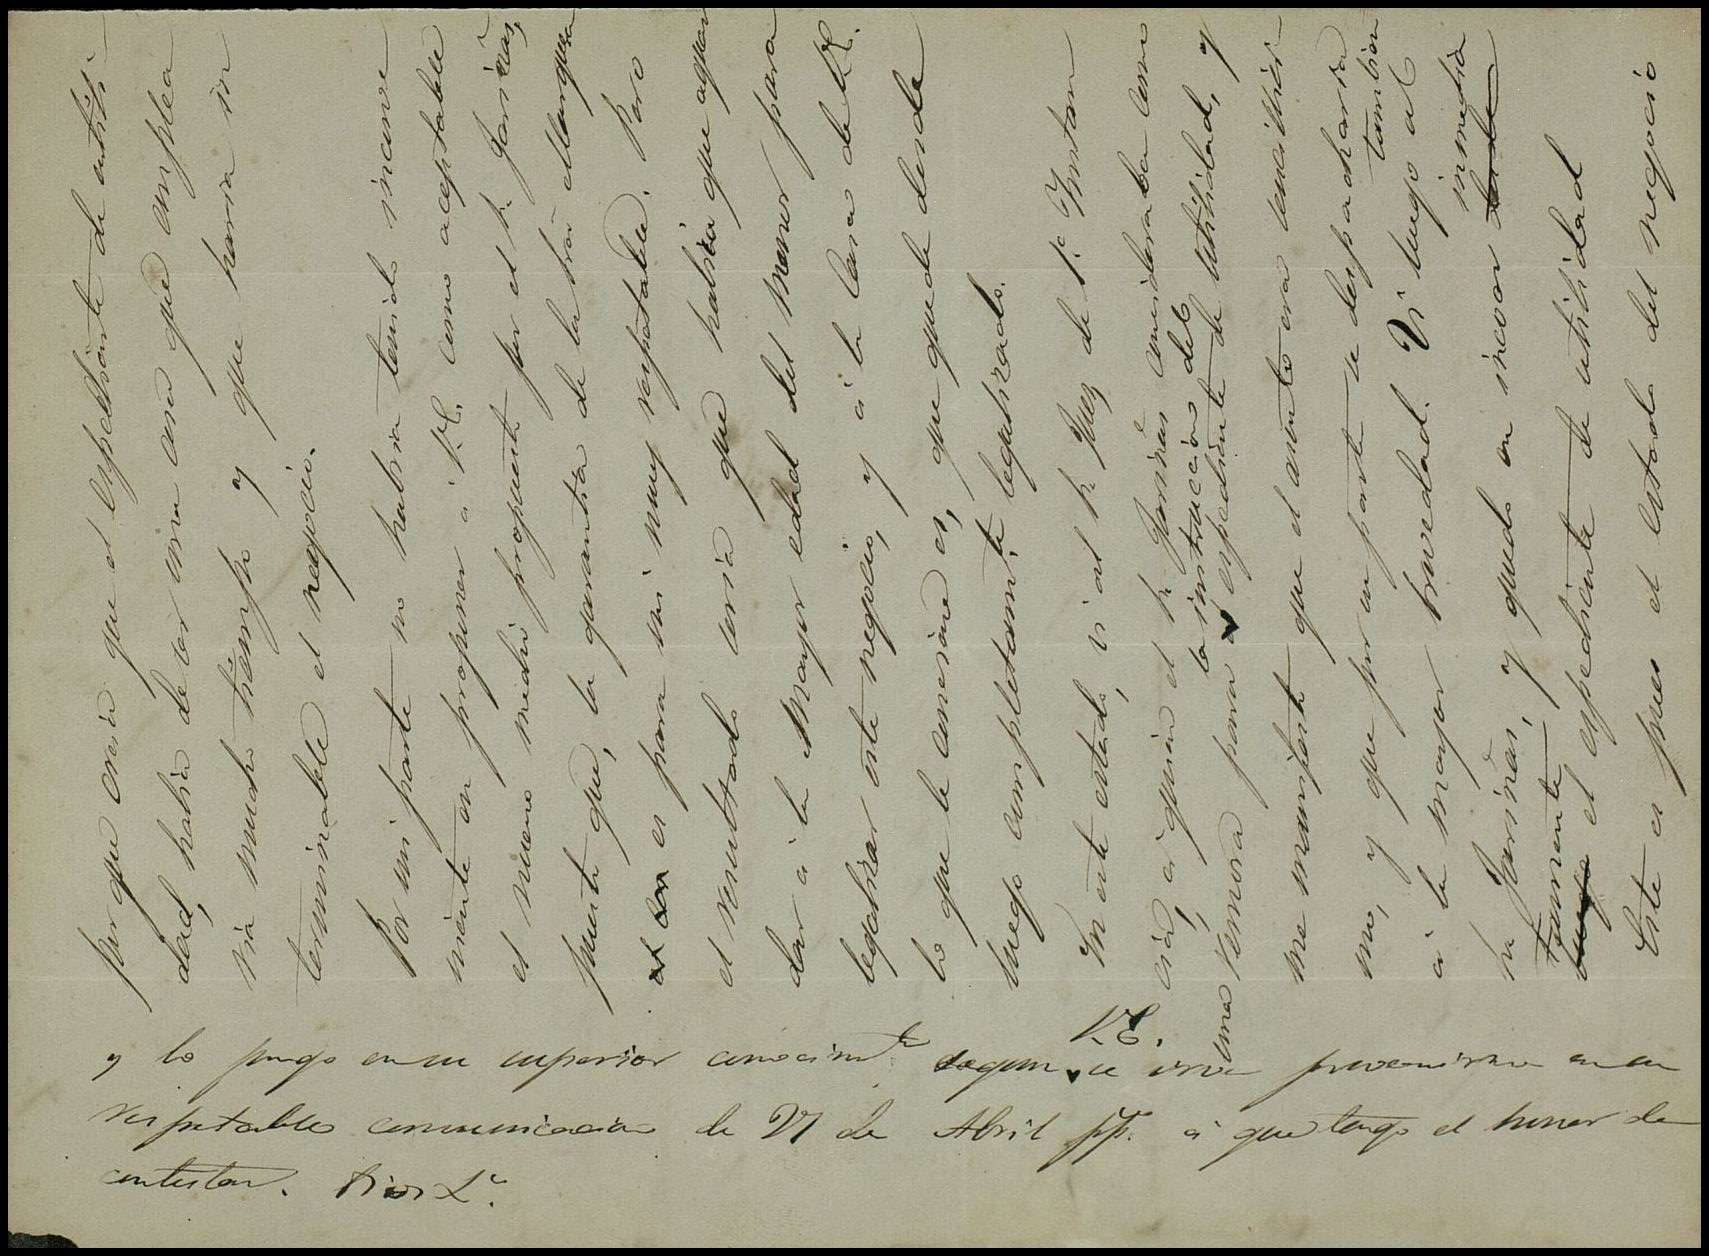 por que creia que el espediente de utili-
dad, habia de ser una cosa que emplea
ria mucho tiempo y que haria in
terminable el negocio.
Por mi parte no habria tenido inconve
niente en proponer á V.E. como aceptable
el nuevo medio propuesto por el Sr. Fariñas,
puesto que, la garantia de la Sra Marquesa
es para mi muy respetable. Pero
el resultado seria que habria que aguar
dar á la mayor edad del menor para
legalizar este negocio, y á la Casa de V.E.
lo que le conviene es, que quede desde
luego completamte legalizado.
En este estado, vi al Sr Juez de 1ª Instan
cia, á quien el Sr Fariñas consideraba como
una remora para la instruccion del espediente de utilidad, y
me manifestó que el asunto era sencillisi-
mo, y que por su parte se despacharia
á la mayor brevedad. Vi luego al tambien
Sr Fariñas, y quedó en incoar inmedia
tamente el espediente de utilidad
Este es pues el estado del negocio
y lo pongo en su superior conocimto segun V.E. se sirve prevenirme en su
respetable comunicacion de 21 de Abril pp. á que tengo el honor de
contestar. Dios &.